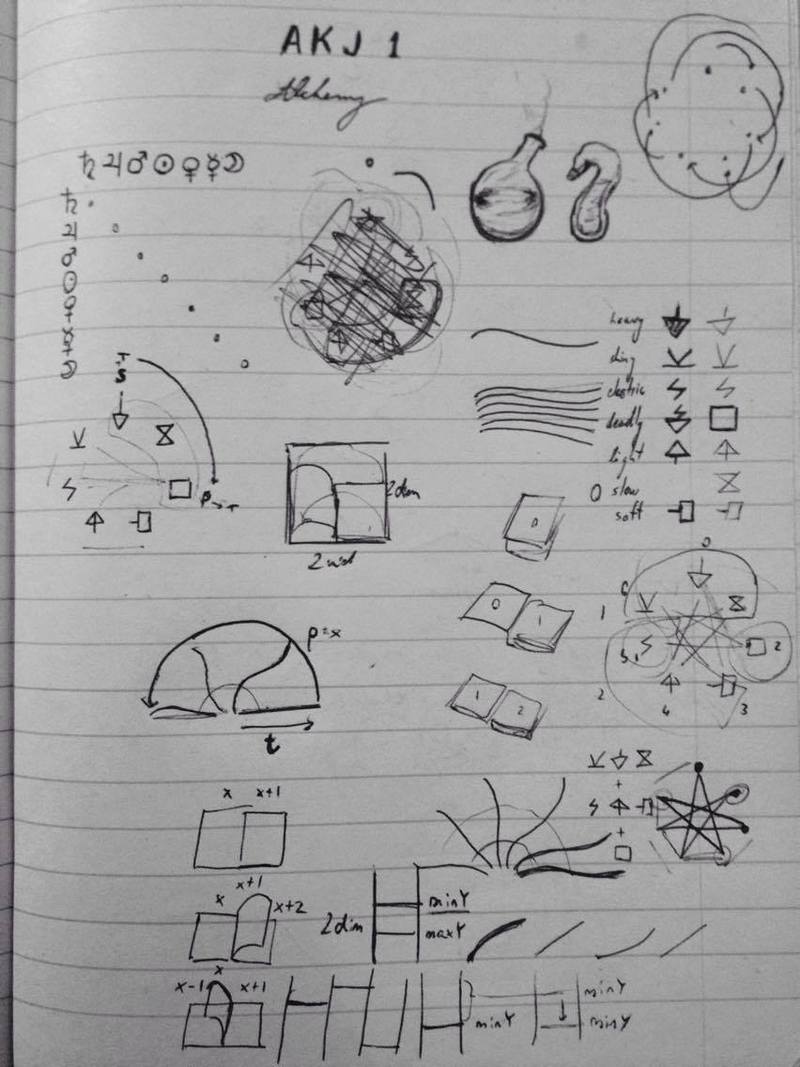 AKJ 1
Alchemy
♄ ♃ ♂ ☉ ♀ ☿ ☽
♄
♃
♂
☉
♀
☿
☽
heavy
electric
deadly
light
0 slow
soft
2dim
p=x
t
0
0 1
1 2
0
1
2
2
3
4
x x+1
x x+1 x+2
2dim
minY
maxY
x-1 x x+1
minY
minY
minY